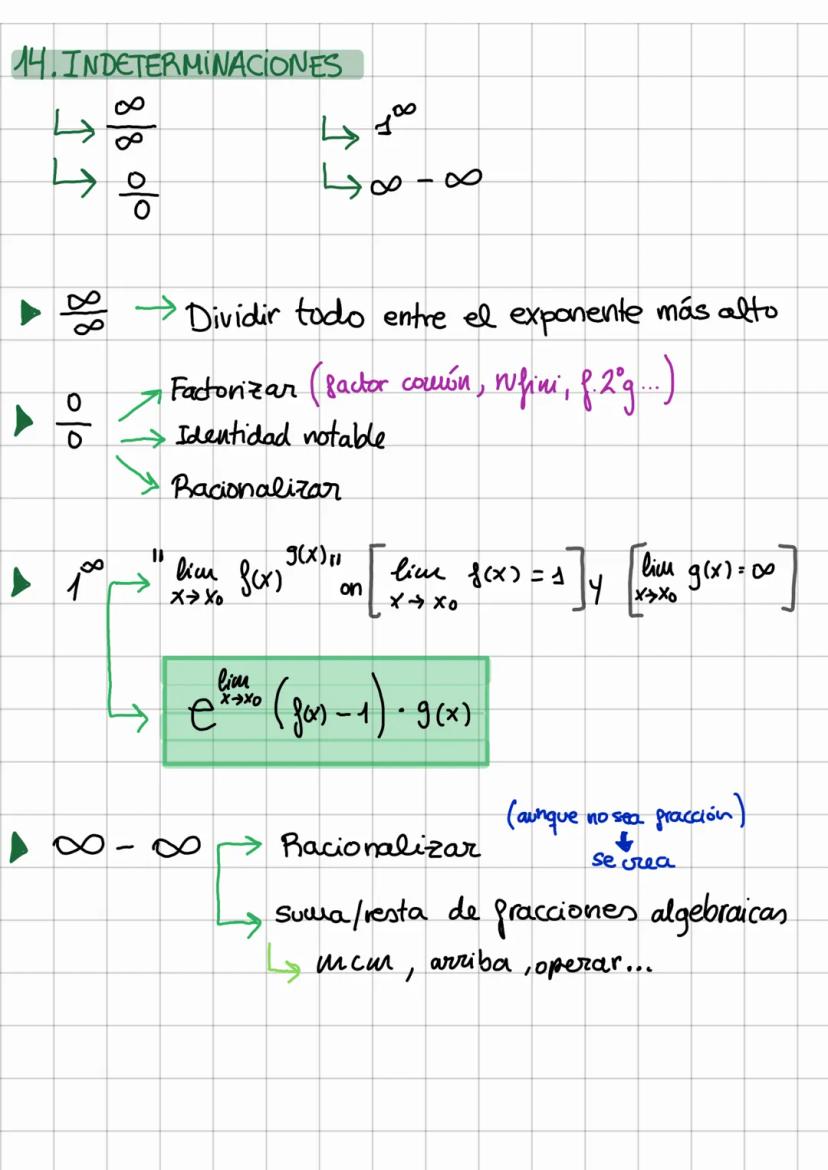 14. INDETERMINACIONES
↳ ∞/∞ ↳ 1^∞
↳ 0/0 ↳ ∞ - ∞
▶ ∞/∞ → Dividir todo entre el exponente más alto
▶ 0/0 → Factorizar (factor común, Ruffini, f. 2ºg...)
→ Identidad notable
→ Racionalizar
▶ 1^∞ → "lim x→x₀ f(x)^g(x)" on [lim x→x₀ f(x) = 1] y [lim x→x₀ g(x) = ∞]
→ e^lim x→x₀ (f(x) - 1) · g(x)
(aunque no sea fracción)
▶ ∞ - ∞ → Racionalizar
↓
se crea
→ suma/resta de fracciones algebraicas
↳ mcm, arriba, operar...